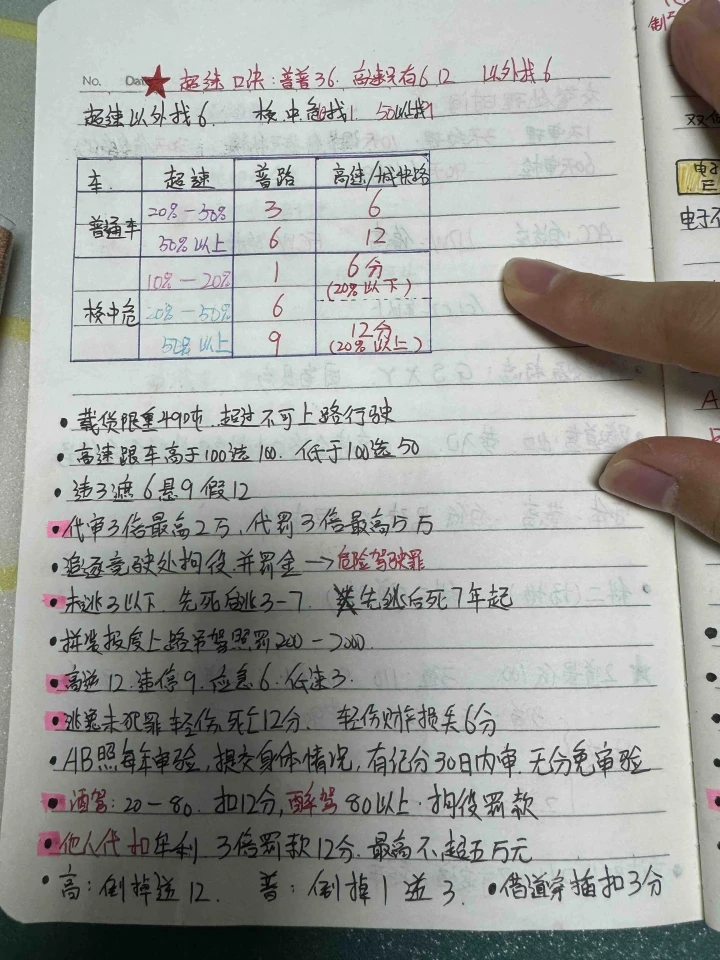 No. Date
超速口诀:普普36. 高速只有6 12 以外找6
超速以外找6. 校.中危找1. 50以找1
车. 超速 普路 高速/城快路
普通车 20%-50% 3 6
50%以上 6 12
校中危 10%-20% 1 6分(20%以下)
20%-50% 6
50%以上 9 12分(20%以上)
• 载货限重49吨.超过不可上路行驶
• 高速跟车高于100选100. 低于100选50
• 违3遮6悬9假12
• 代审3倍最高2万,代罚3倍最高5万
• 追逐竞驶处拘役.并罚金→危险驾驶罪
• 未逃3以下.先死后逃3-7. 先逃后死7年起
• 拼装报废上路吊驾照罚200-2000.
• 高逆12.违停9.应急6.低速3.
• 逃逸未犯罪轻伤.死亡12分. 轻伤财产损失6分
• AB照每年审验,提交身体情况,有记分30日内审.无分免审验
• 酒驾:20-80. 扣12分,醉驾80以上.拘役罚款
• 他人代扣牟利 3倍罚款12分.最高不超五万元
• 高:倒掉逆12. 普:倒掉1逆3. • 借道穿插扣3分
电子
电子不